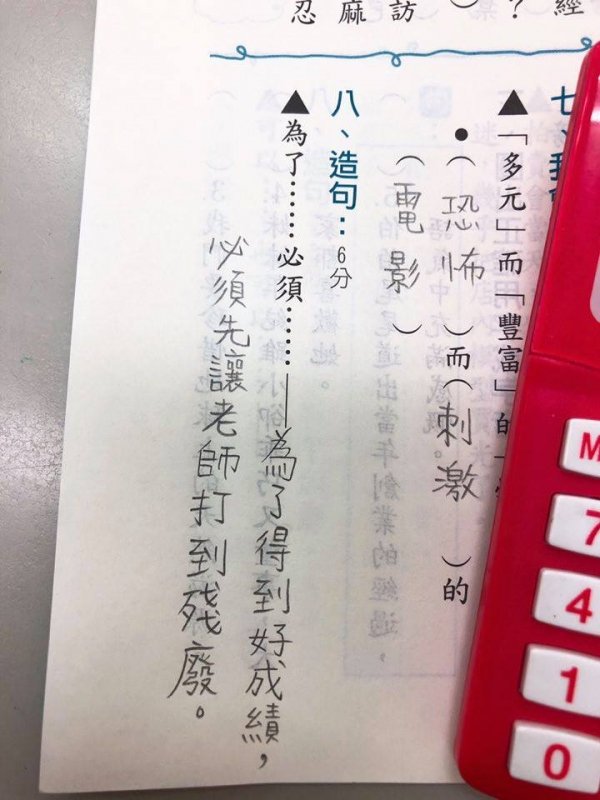 經
？
）訪
麻
忍
七、我
▲「多元」而「豐富」的
●（恐怖）而（刺激）的
（電影）
八、造句：6分
▲為了……必須……——為了得到好成績，
必須先讓老師打到殘廢。
M
7
4
1
0